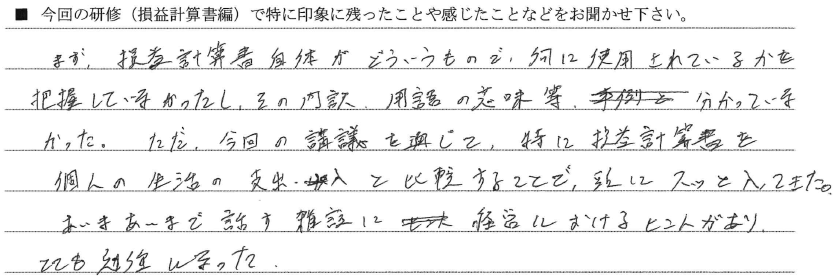 ■ 今回の研修（損益計算書編）で特に印象に残ったことや感じたことなどをお聞かせ下さい。
まず、損益計算書自体がどういうもので、何に使用されているかを
把握していなかったし、その内訳、用語の意味等、分かっていな
かった。ただ、今回の講議を通じて、特に損益計算書を
個人の生活の支出・収入と比較することで、頭にスッと入ってきた。
あいまあいまで話す雑談に経営におけるヒントがあり、
とても勉強になった。